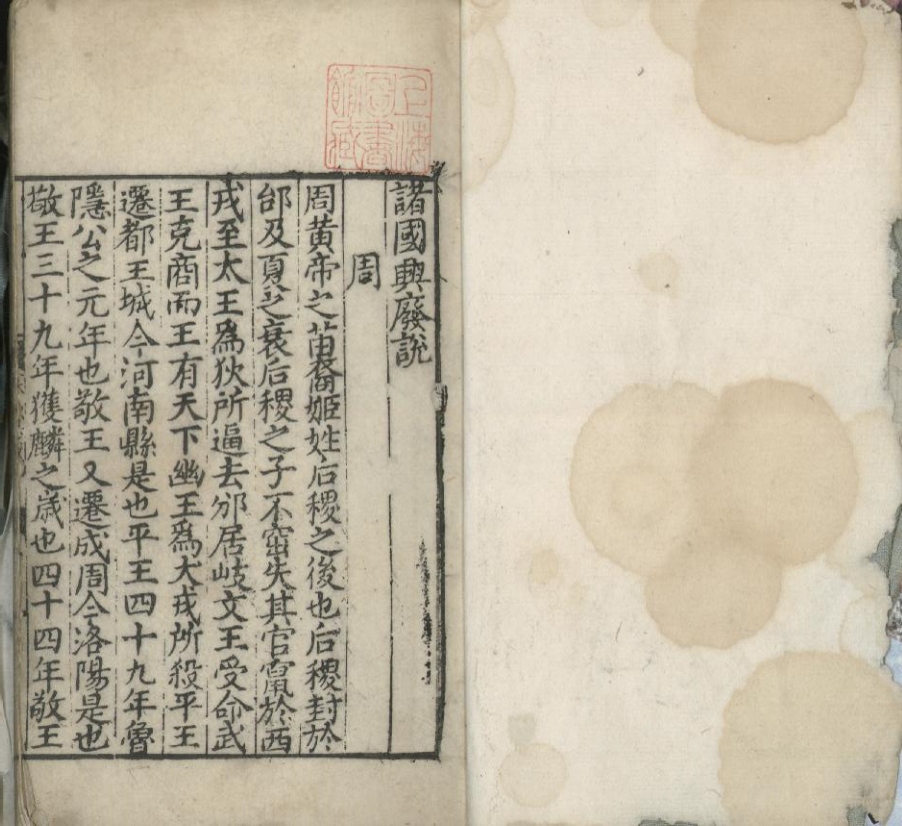 諸國興廢說
周
周黃帝之苗裔姬姓后稷之後也后稷封於
邰及夏之衰后稷之子不窋失其官竄於西
戎至太王爲狄所逼去邠居岐文王受命武
王克商而王有天下幽王爲犬戎所殺平王
遷都王城今河南縣是也平王四十九年魯
隱公之元年也敬王又遷成周今洛陽是也
敬王三十九年獲麟之歲也四十四年敬王
上海圖書館藏